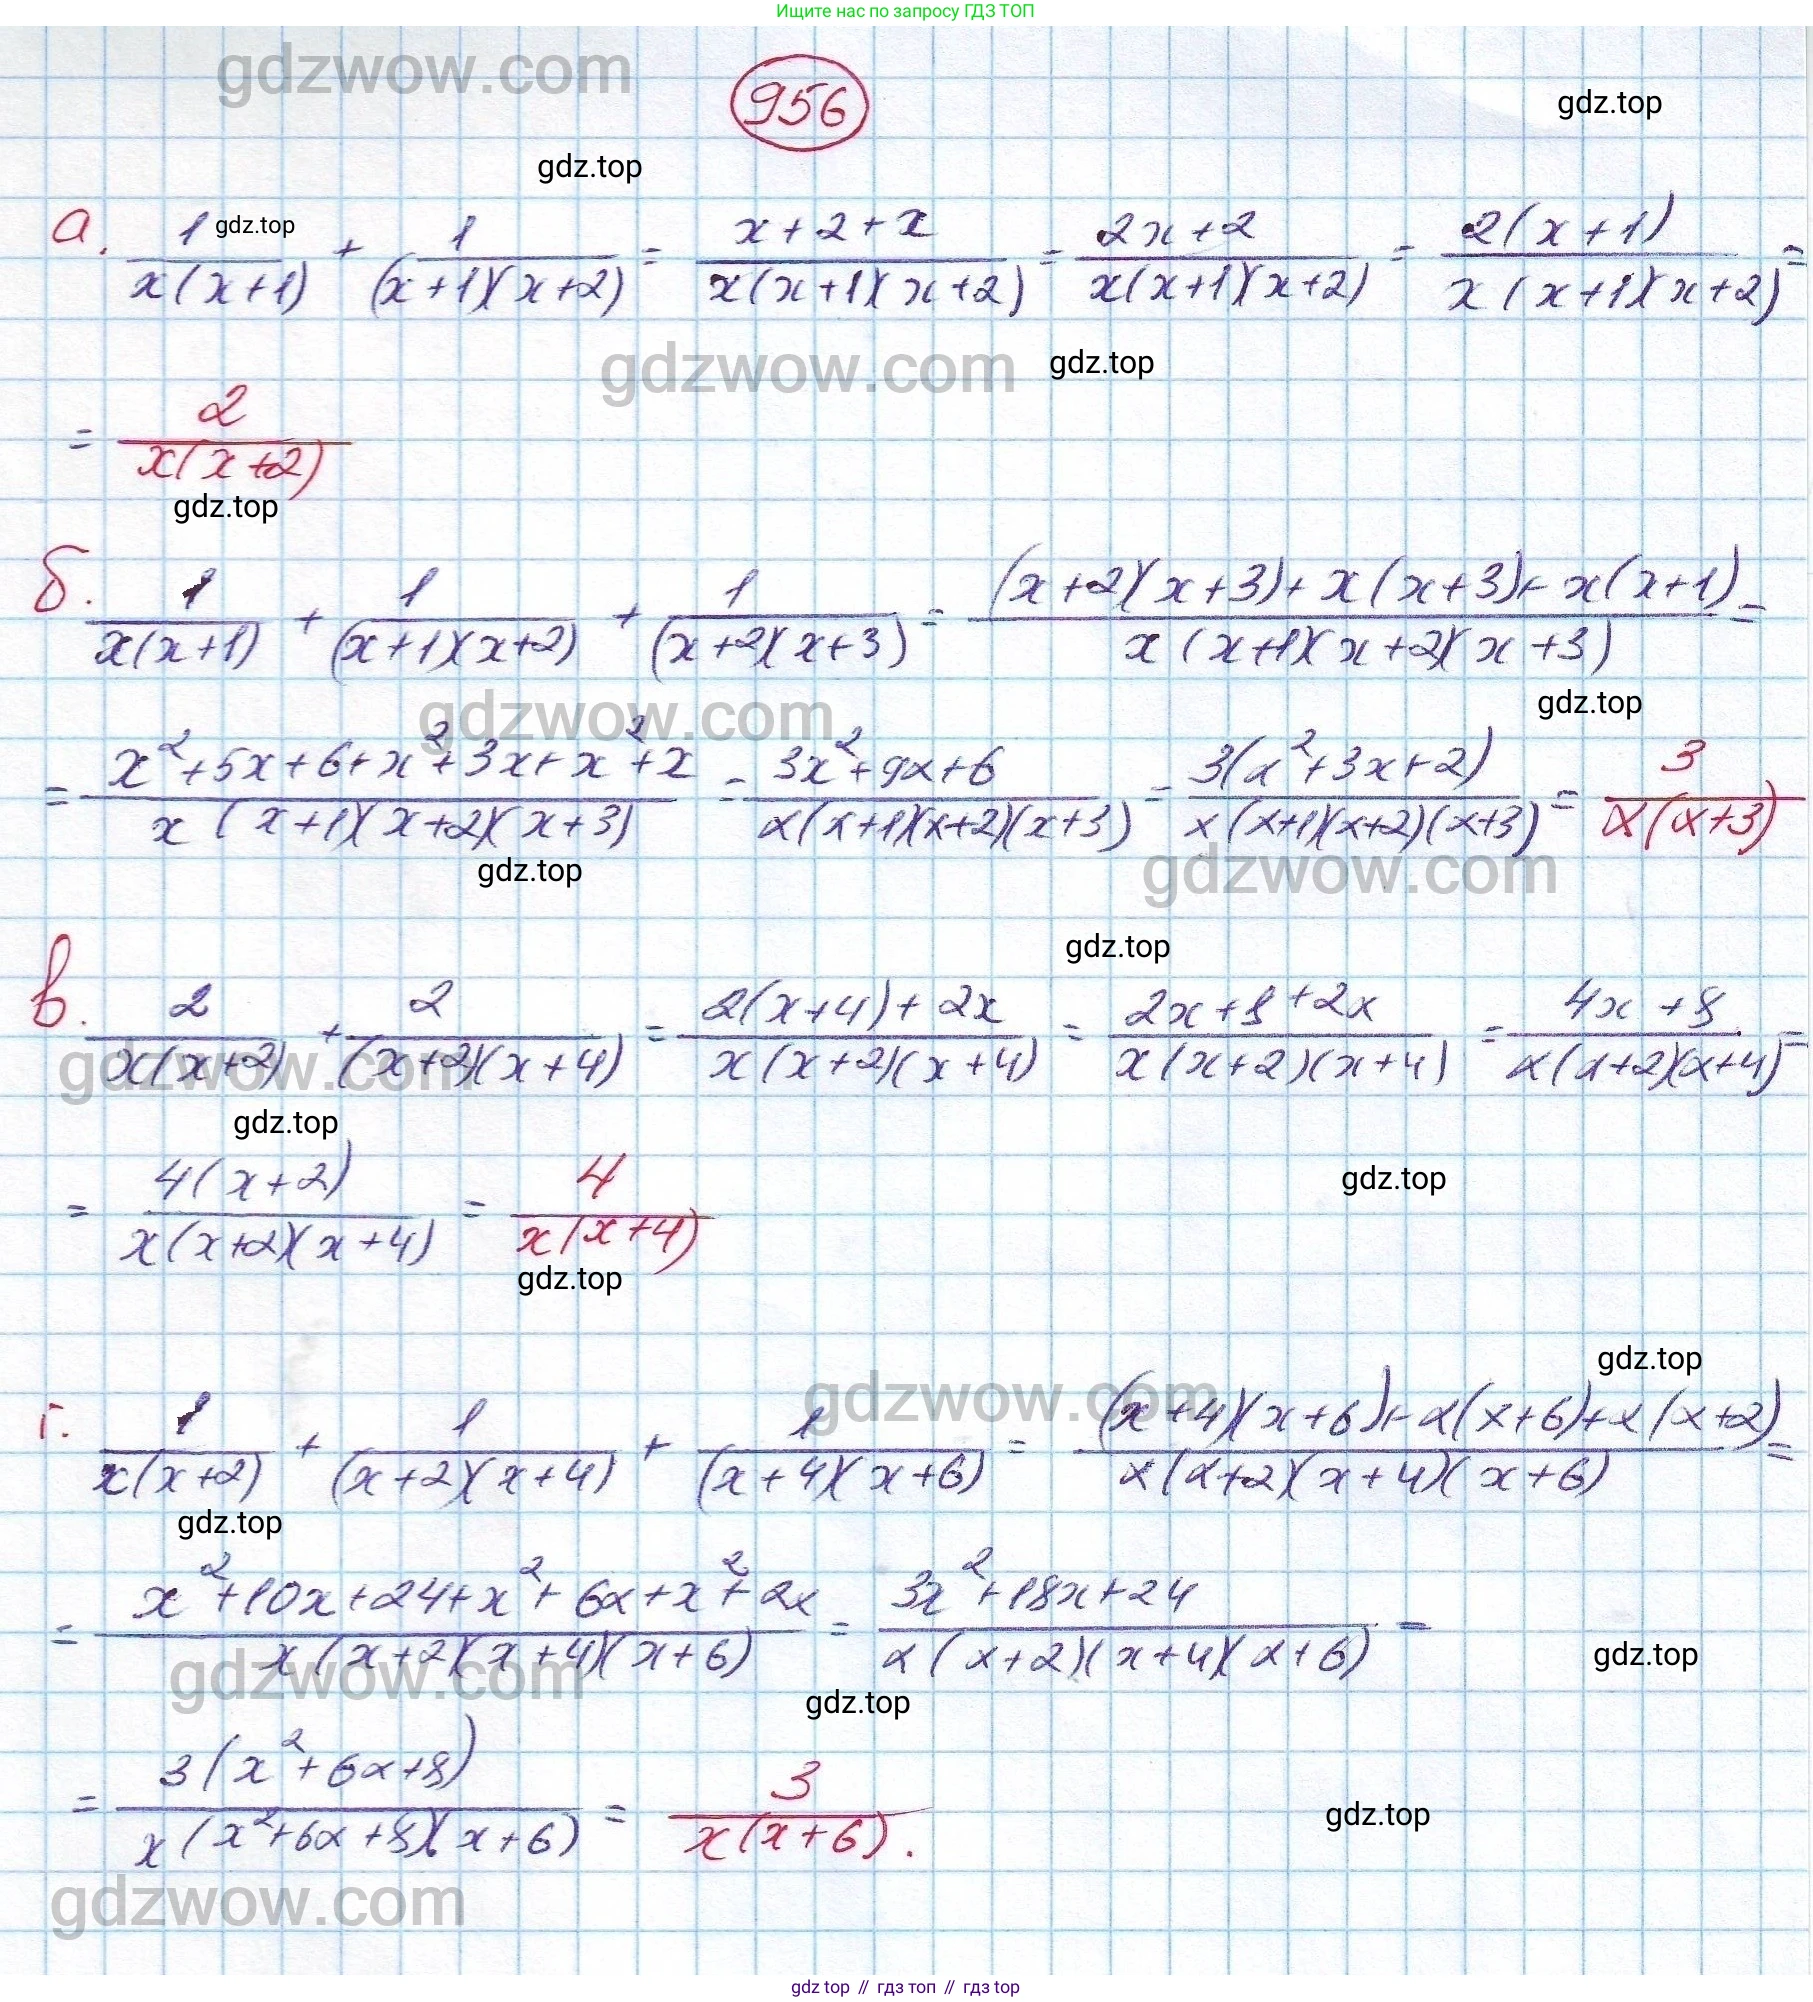 Ищите нас по запросу ГДЗ ТОП
gdzwow.com
956
gdz.top
gdz.top
а. 1/(x(x+1)) + 1/((x+1)(x+2)) = (x+2+x)/(x(x+1)(x+2)) = (2x+2)/(x(x+1)(x+2)) = 2(x+1)/(x(x+1)(x+2)) =
gdz.top
gdzwow.com
gdz.top
= 2/(x(x+2))
gdz.top
б. 1/(x(x+1)) + 1/((x+1)(x+2)) + 1/((x+2)(x+3)) = ((x+2)(x+3)+x(x+3)+x(x+1))/(x(x+1)(x+2)(x+3)) =
gdzwow.com
gdz.top
= (x²+5x+6+x²+3x+x²+x)/(x(x+1)(x+2)(x+3)) = (3x²+9x+6)/(x(x+1)(x+2)(x+3)) = 3(x²+3x+2)/(x(x+1)(x+2)(x+3)) = 3/(x(x+3))
gdz.top
gdzwow.com
gdz.top
в. 2/(x(x+2)) + 2/((x+2)(x+4)) = (2(x+4)+2x)/(x(x+2)(x+4)) = (2x+8+2x)/(x(x+2)(x+4)) = (4x+8)/(x(x+2)(x+4)) =
gdzwow.com
gdz.top
= 4(x+2)/(x(x+2)(x+4)) = 4/(x(x+4))
gdz.top
gdz.top
gdz.top
gdzwow.com
г. 1/(x(x+2)) + 1/((x+2)(x+4)) + 1/((x+4)(x+6)) = ((x+4)(x+6)+x(x+6)+x(x+2))/(x(x+2)(x+4)(x+6)) =
gdz.top
= (x²+10x+24+x²+6x+x²+2x)/(x(x+2)(x+4)(x+6)) = (3x²+18x+24)/(x(x+2)(x+4)(x+6)) =
gdzwow.com
gdz.top
gdz.top
= 3(x²+6x+8)/(x(x²+6x+8)(x+6)) = 3/(x(x+6)).
gdz.top
gdzwow.com
gdz top // гдз топ // гдз top